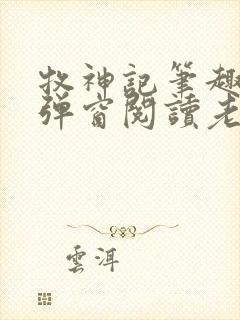 牧神記筆趣
彈窗閱讀老
雲洱